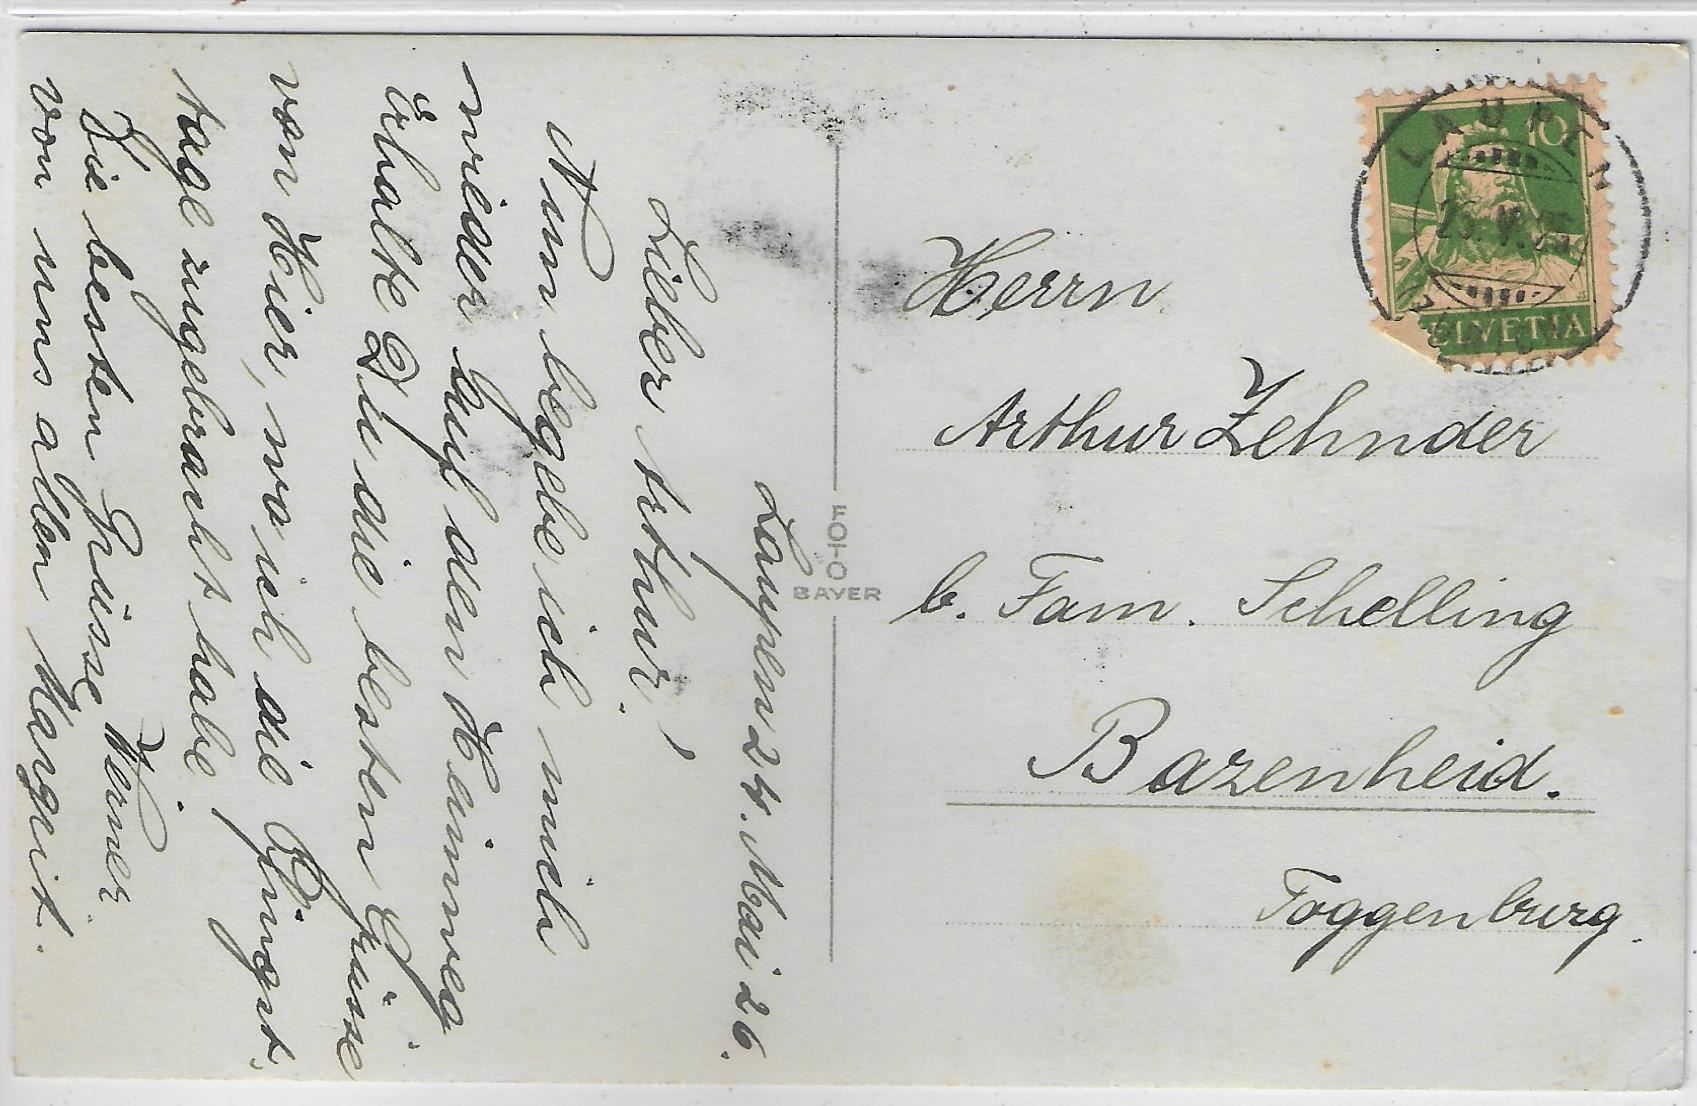 Laupen 24. Mai 26.
Lieber Arthur!
Nun begebe ich mich
wieder auf den Heimweg.
Erhalte Du die besten Grüsse
von Hier, wo ich die Pfingst-
tage zugebracht habe.
Die besten Grüsse Werner
von uns allen Margrit.
FOTO
BAYER
10
HELVETIA
LAUPEN
25.V.26
Herrn
Arthur Zehnder
b. Fam. Schelling
Bazenheid.
Toggenburg.